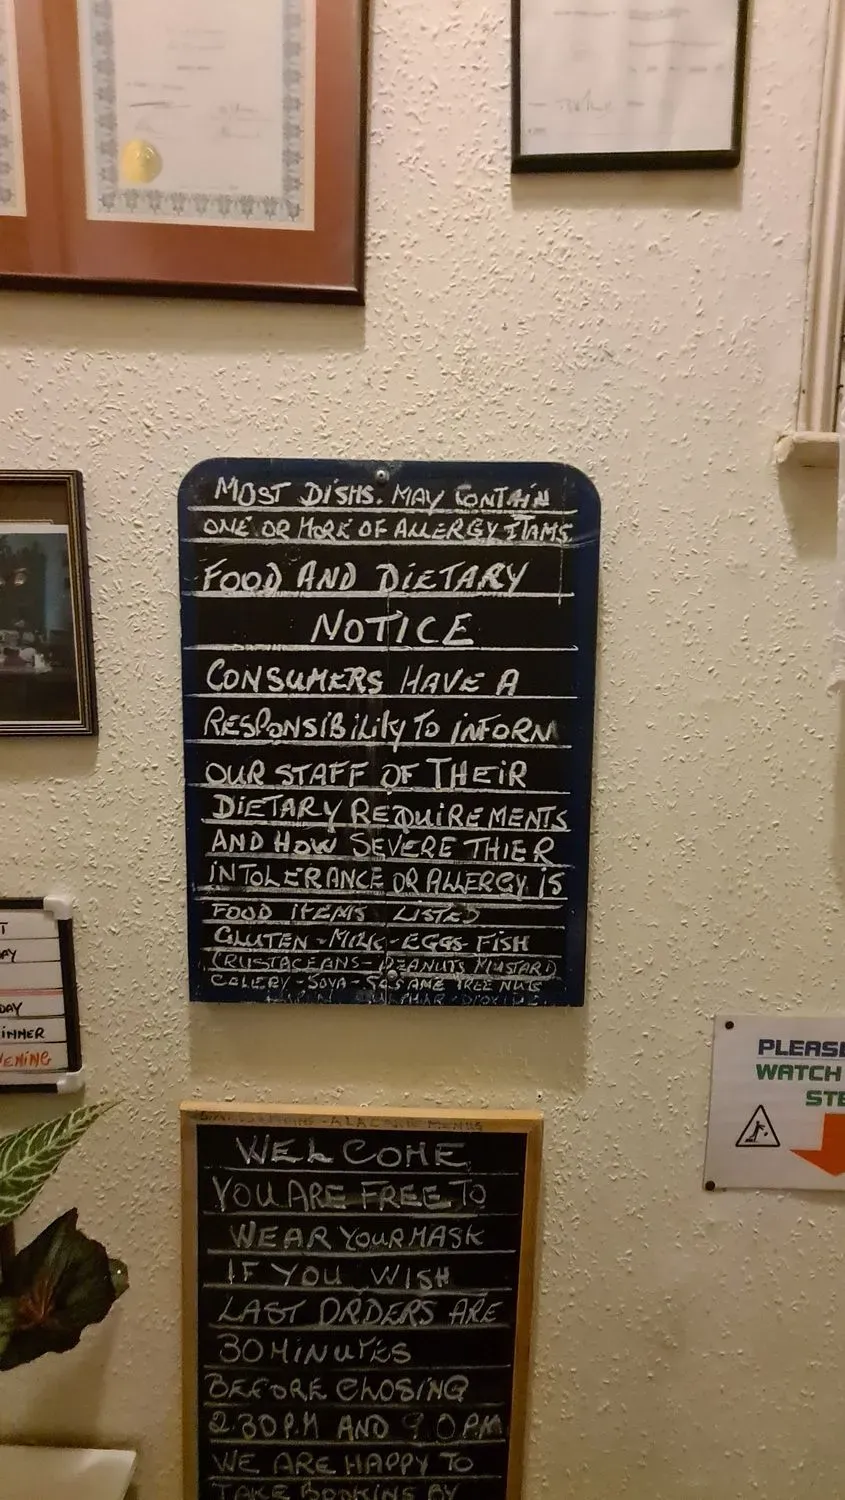 MOST DISHS. MAY CONTAIN
ONE OR MORE OF ALLERGY ITAMS
FOOD AND DIETARY
NOTICE
CONSUMERS HAVE A
RESPONSIBILITY TO INFORM
OUR STAFF OF THEIR
DIETARY REQUIREMENTS
AND HOW SEVERE THIER
INTOLERANCE OR ALLERGY IS
FOOD ITEMS LISTED
GLUTEN - MILK - EGGS - FISH
CRUSTACEANS - PEANUTS MUSTARD
CELLERY - SOYA - SESAME TREE NUTS
DIOXIDE
T
AY
DAY
INNER
VENING
PLEASE
WATCH
STE
WELCOME
YOU ARE FREE TO
WEAR YOUR MASK
IF YOU WISH
LAST ORDERS ARE
30 MINUTES
BEFORE CLOSING
2.30 P.M AND 9 0 P.M
WE ARE HAPPY TO
TAKE BOOKING BY